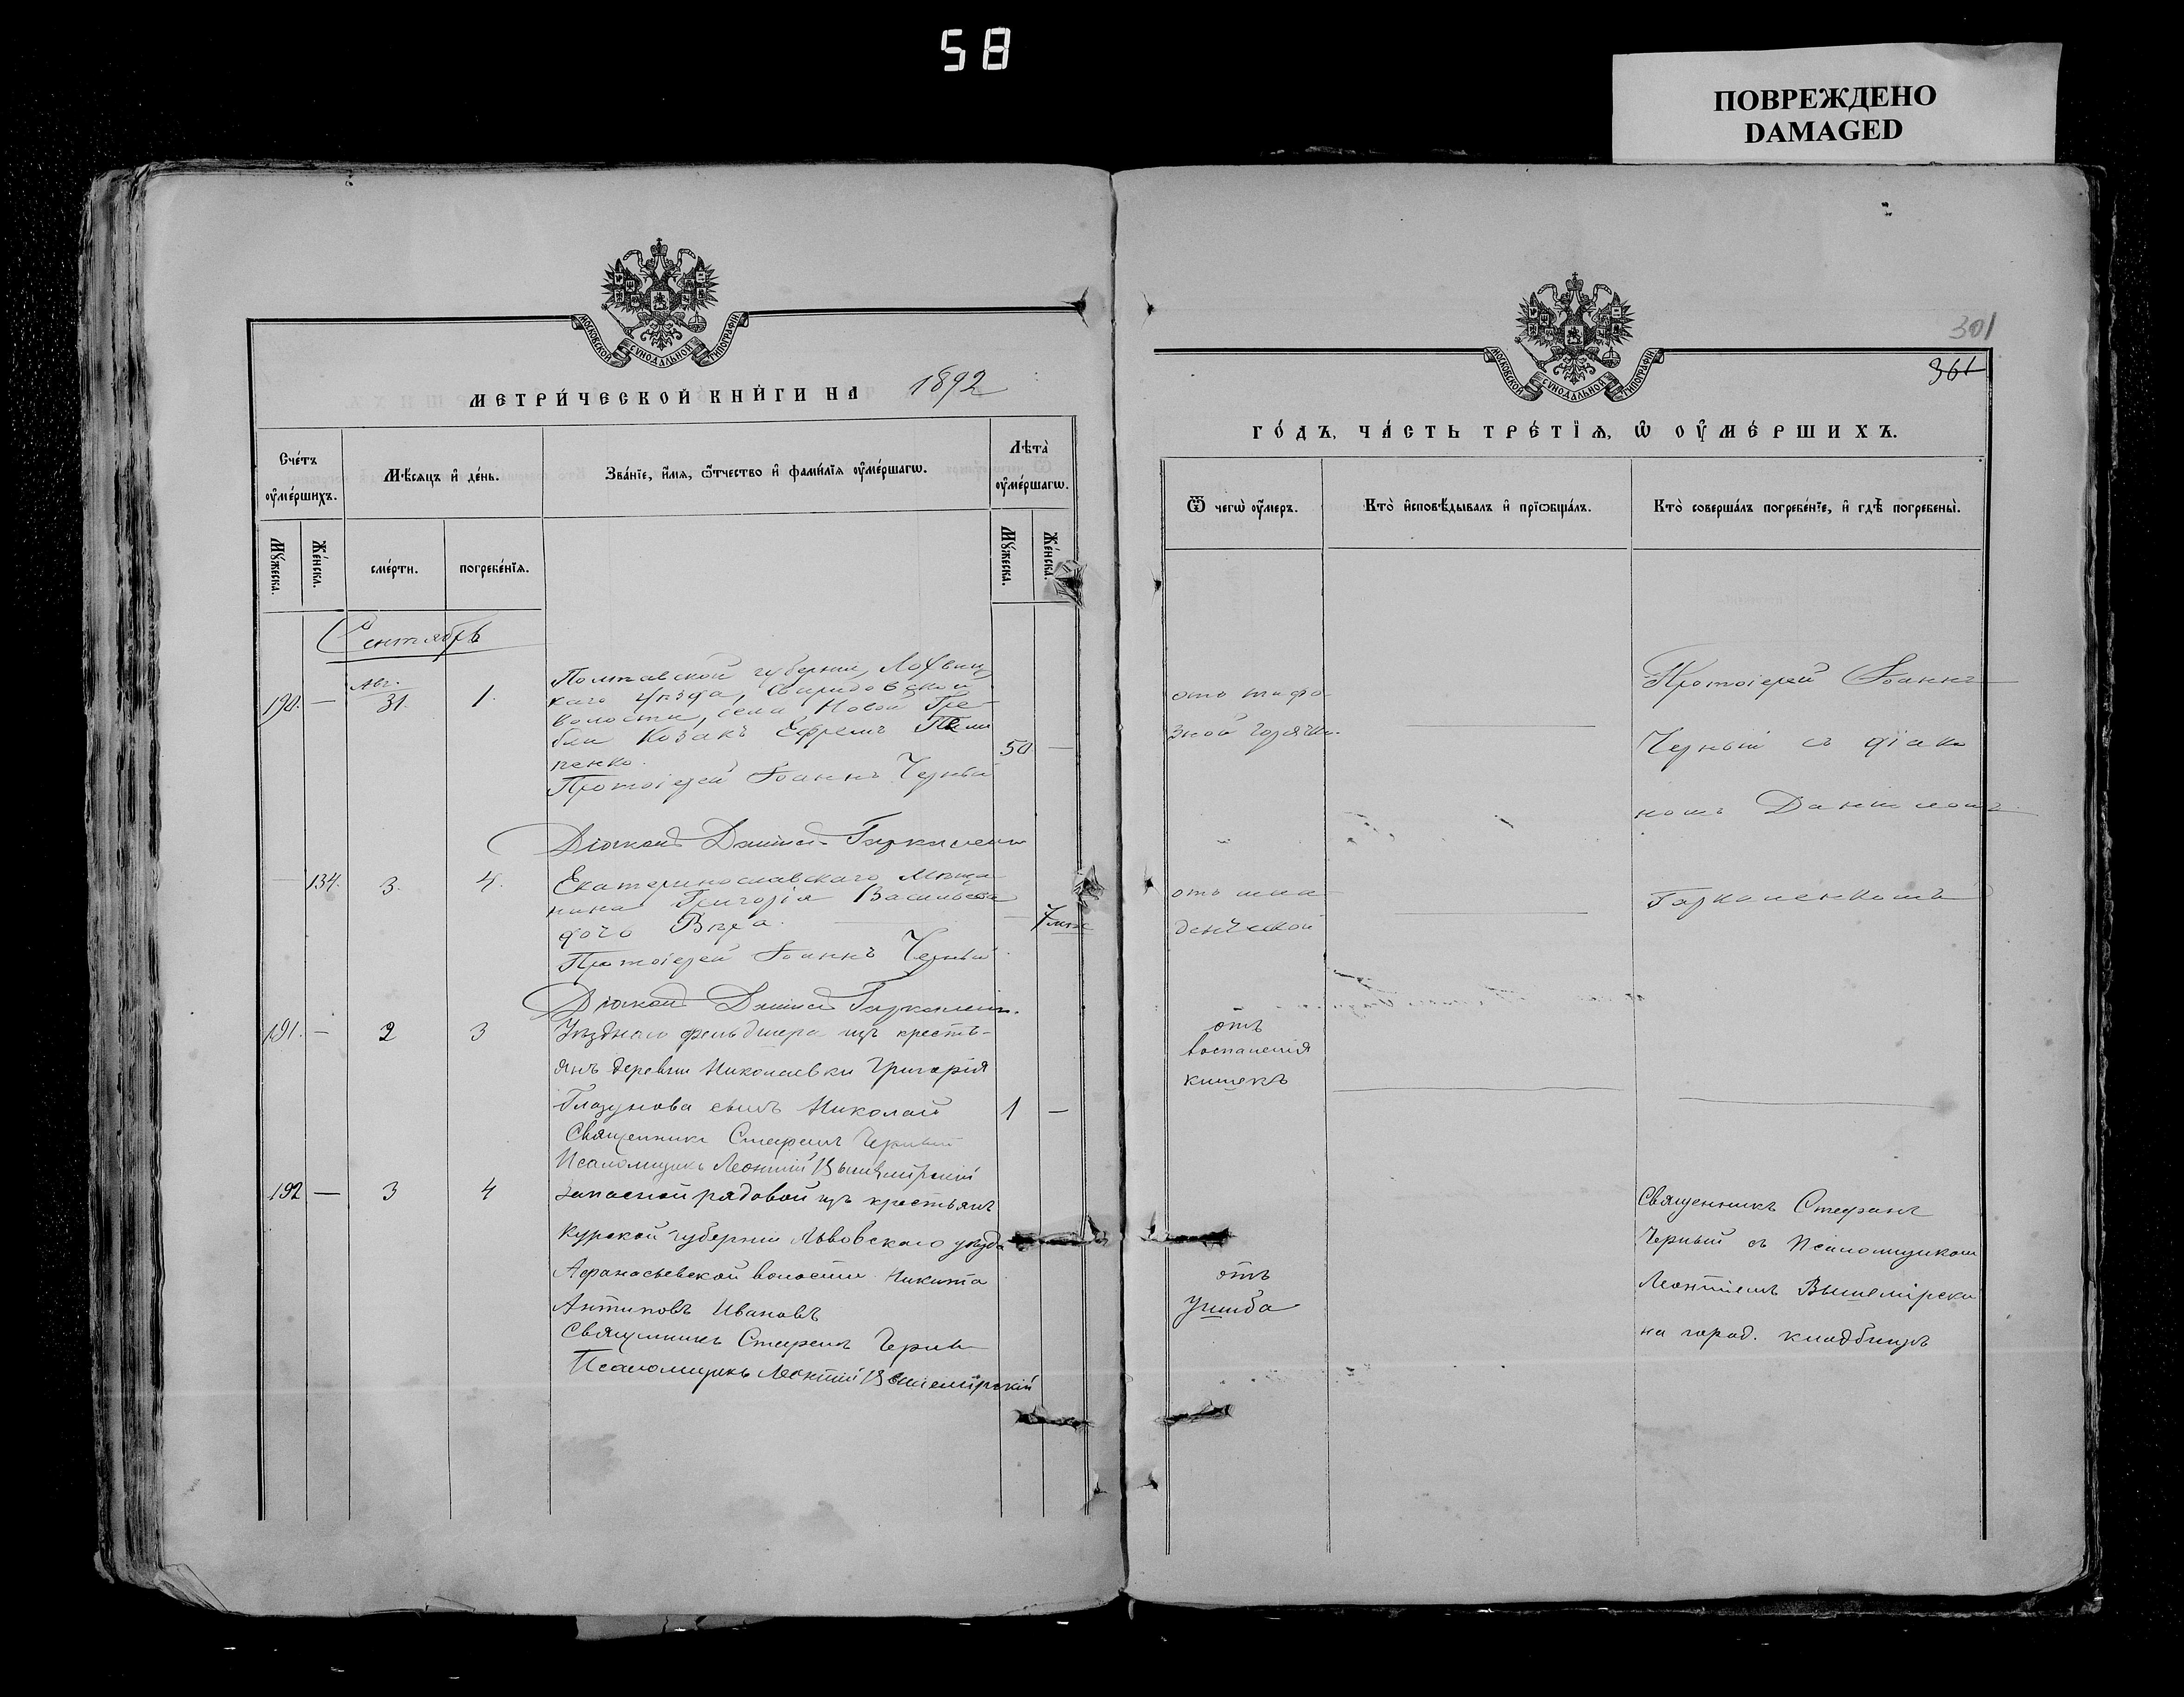 58
ПОВРЕЖДЕНО
DAMAGED
МОСКОВСКОЙ СѴНОДАЛЬНОЙ ТИПОГРАФІИ
МЕТРИ́ЧЕСКОЙ КНИ́ГИ НА 1892
Сче́тъ оу҆ме́ршихъ.
Мѣ́сяцъ и҆ де́нь.
Зва́нїе, и҆́мя, ѻ҆́тчество и҆ фами́лїя оу҆ме́ршагѡ.
Лѣта̀ оу҆ме́ршагѡ.
Мꙋ́жеска.
Же́нска.
сме́рти.
погребе́нїя.
Мꙋ́жеска.
Же́нска.
Сентябрь
190. — Авг. 31. 1.
Полтавской губерніи, Лохвиц
каго уѣзда, Свиридовской
волости, села Новой Гре
бли Козакъ Ефремъ
пенко. 50 —
Протоіерей Іоаннъ Черный
Діаконъ Даніилъ Гаркаленко
— 134. 3. 4. Екатеринославскаго мѣща
нина Григорія Васильева
дочь Вѣра. — 7 мѣс
Протоіерей Іоаннъ Черный.
Діаконъ Даніилъ Гаркаленко.
191. — 2 3 Уѣзднаго фельдшера изъ кресть-
янъ деревни Николаевки Григорія
Глазунова сынъ Николай 1 —
Священникъ Стефанъ Черный
Псаломщикъ Леонтій Вышемірскій
192 — 3 4 Запасной рядовой изъ крестьянъ
Курской губерніи Льговскаго уѣзда
Афанасьевской волости Никита
Антиповъ Ивановъ
Священникъ Стефанъ Черный
Псаломщикъ Леонтій Вышемірскій
МОСКОВСКОЙ СѴНОДАЛЬНОЙ ТИПОГРАФІИ
301
361
ГО́ДЪ, ЧА́СТЬ ТРЕ́ТІѦ, Ѡ҆ ОУ҆МЕ́РШИХЪ.
Ѿ чегѡ̀ оу҆́меръ.
Кто̀ и҆сповѣ́дывалъ и҆ прїѡбща́лъ.
Кто̀ соверша́лъ погребе́нїе, и҆ гдѣ̀ погребены̀.
отъ тифо
зной горячки.
Протоіерей Іоаннъ
Черный съ діако
номъ Даніиломъ
Гаркаленкомъ
отъ мла
денческой
отъ
воспаленія
кишекъ
отъ
ушиба
Священникъ Стефанъ
Черный съ Псаломщикомъ
Леонтіемъ Вышемірски
на город. кладбищѣ